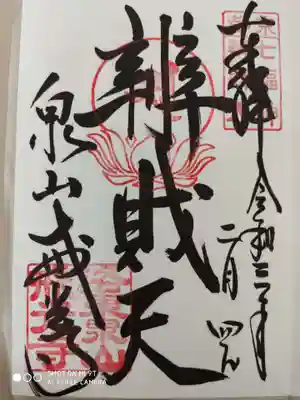 奉拝 令和三年
二月四日
辨財天
泉山 戒光寺
SHOT ON MI 9T
AI TRIPLE CAMERA